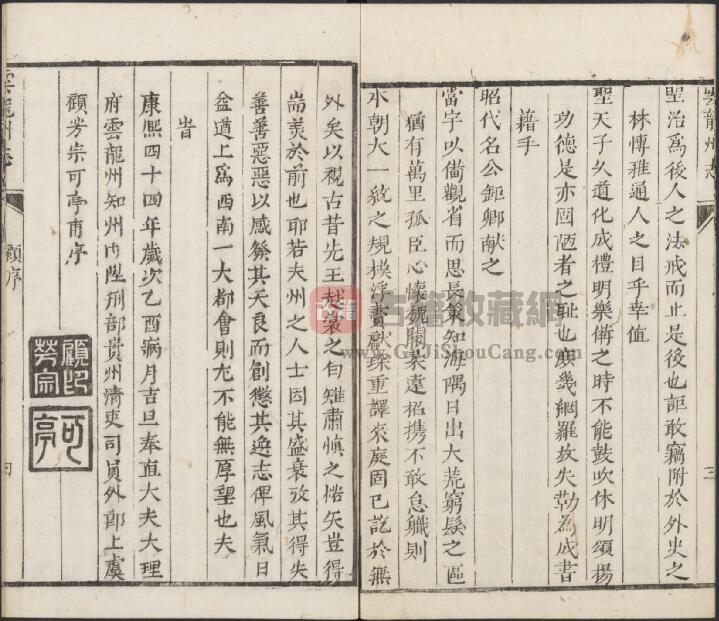 雲龍州志
聖治爲後人之法戒而止是後也詎敢竊附於外史之
林傳雅通人之目乎幸值
聖天子久道化成禮明樂備之時不能鼓吹休明頌揚
功德是亦固陋者之耻也庶幾網羅放失勒爲成書
藉手
昭代名公鉅卿獻之
當宁以備觀省而思長策知海隅日出大荒窮髮之區
猶有萬里孤臣心懷魏闕柔遠招携不敢怠職則
本朝大一統之規模浮賮獻琛重譯來庭固已訖於無
三
外矣以視古昔先王越裳之白雉肅慎之楛矢豈得
耑羙於前也耶若夫州之人士因其盛衰攷其得失
善善惡惡以感發其天良而創懲其逸志俾風氣日
益道上爲西南一大都會則尤不能無厚望也夫
旹
康熙四十四年歲次乙酉病月吉旦奉直大夫大理
府雲龍州知州內陞刑部貴州清吏司員外郎上虞
顧芳宗可亭甫序
顧印芳宗
可亭
雲龍州志
顧序
四
古籍收藏網
www.GuJiShouCang.com